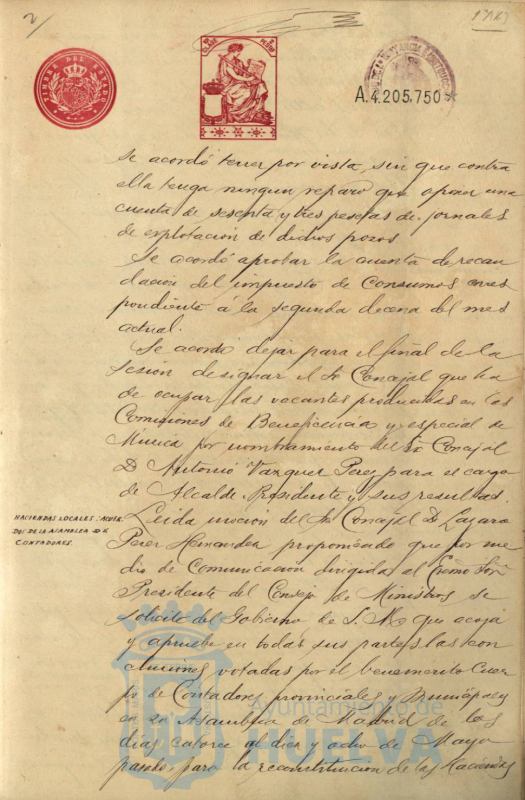 2
TIMBRE DEL ESTADO
A.4.205.750*
se acordó tener por vista, sin que contra
ella tenga ningun reparo que oponer una
cuenta de sesenta y tres pesetas de jornales
de explotacion de dichos pozos
Se acordó aprobar la cuenta de recau
dacion del impuesto de Consumos corres
pondiente á la segunda decena del mes
actual.
Se acordó dejar para el final de la
sesion designar el Sr Concejal que ha
de ocupar las vacantes producidas en las
Comisiones de Beneficencia y especial de
Música por nombramiento del Sr Concejal
D Antonio Vazquez Perez para el cargo
de Alcalde Presidente y sus resultas.
HACIENDAS LOCALES: ACUER-
DOS DE LA ASAMBLEA DE
CONTADORES.
Leida mocion del Sr Concejal D Lazaro
Perez Hernandez proponiendo que por me
dio de comunicacion dirigida al Excmo Señ
Presidente del Consejo de Ministros se
solicite del Gobierno de S. M. que acoja
y apruebe en todas sus partes las con
clusiones votadas por el benemerito Cuer
po de Contadores provinciales y Municipales
en su Asamblea de Madrid de los
dias catorce al diez y ocho de Mayo
pasado, para la reconstitucion de las Haciendas
Ayuntamiento de
HUELVA